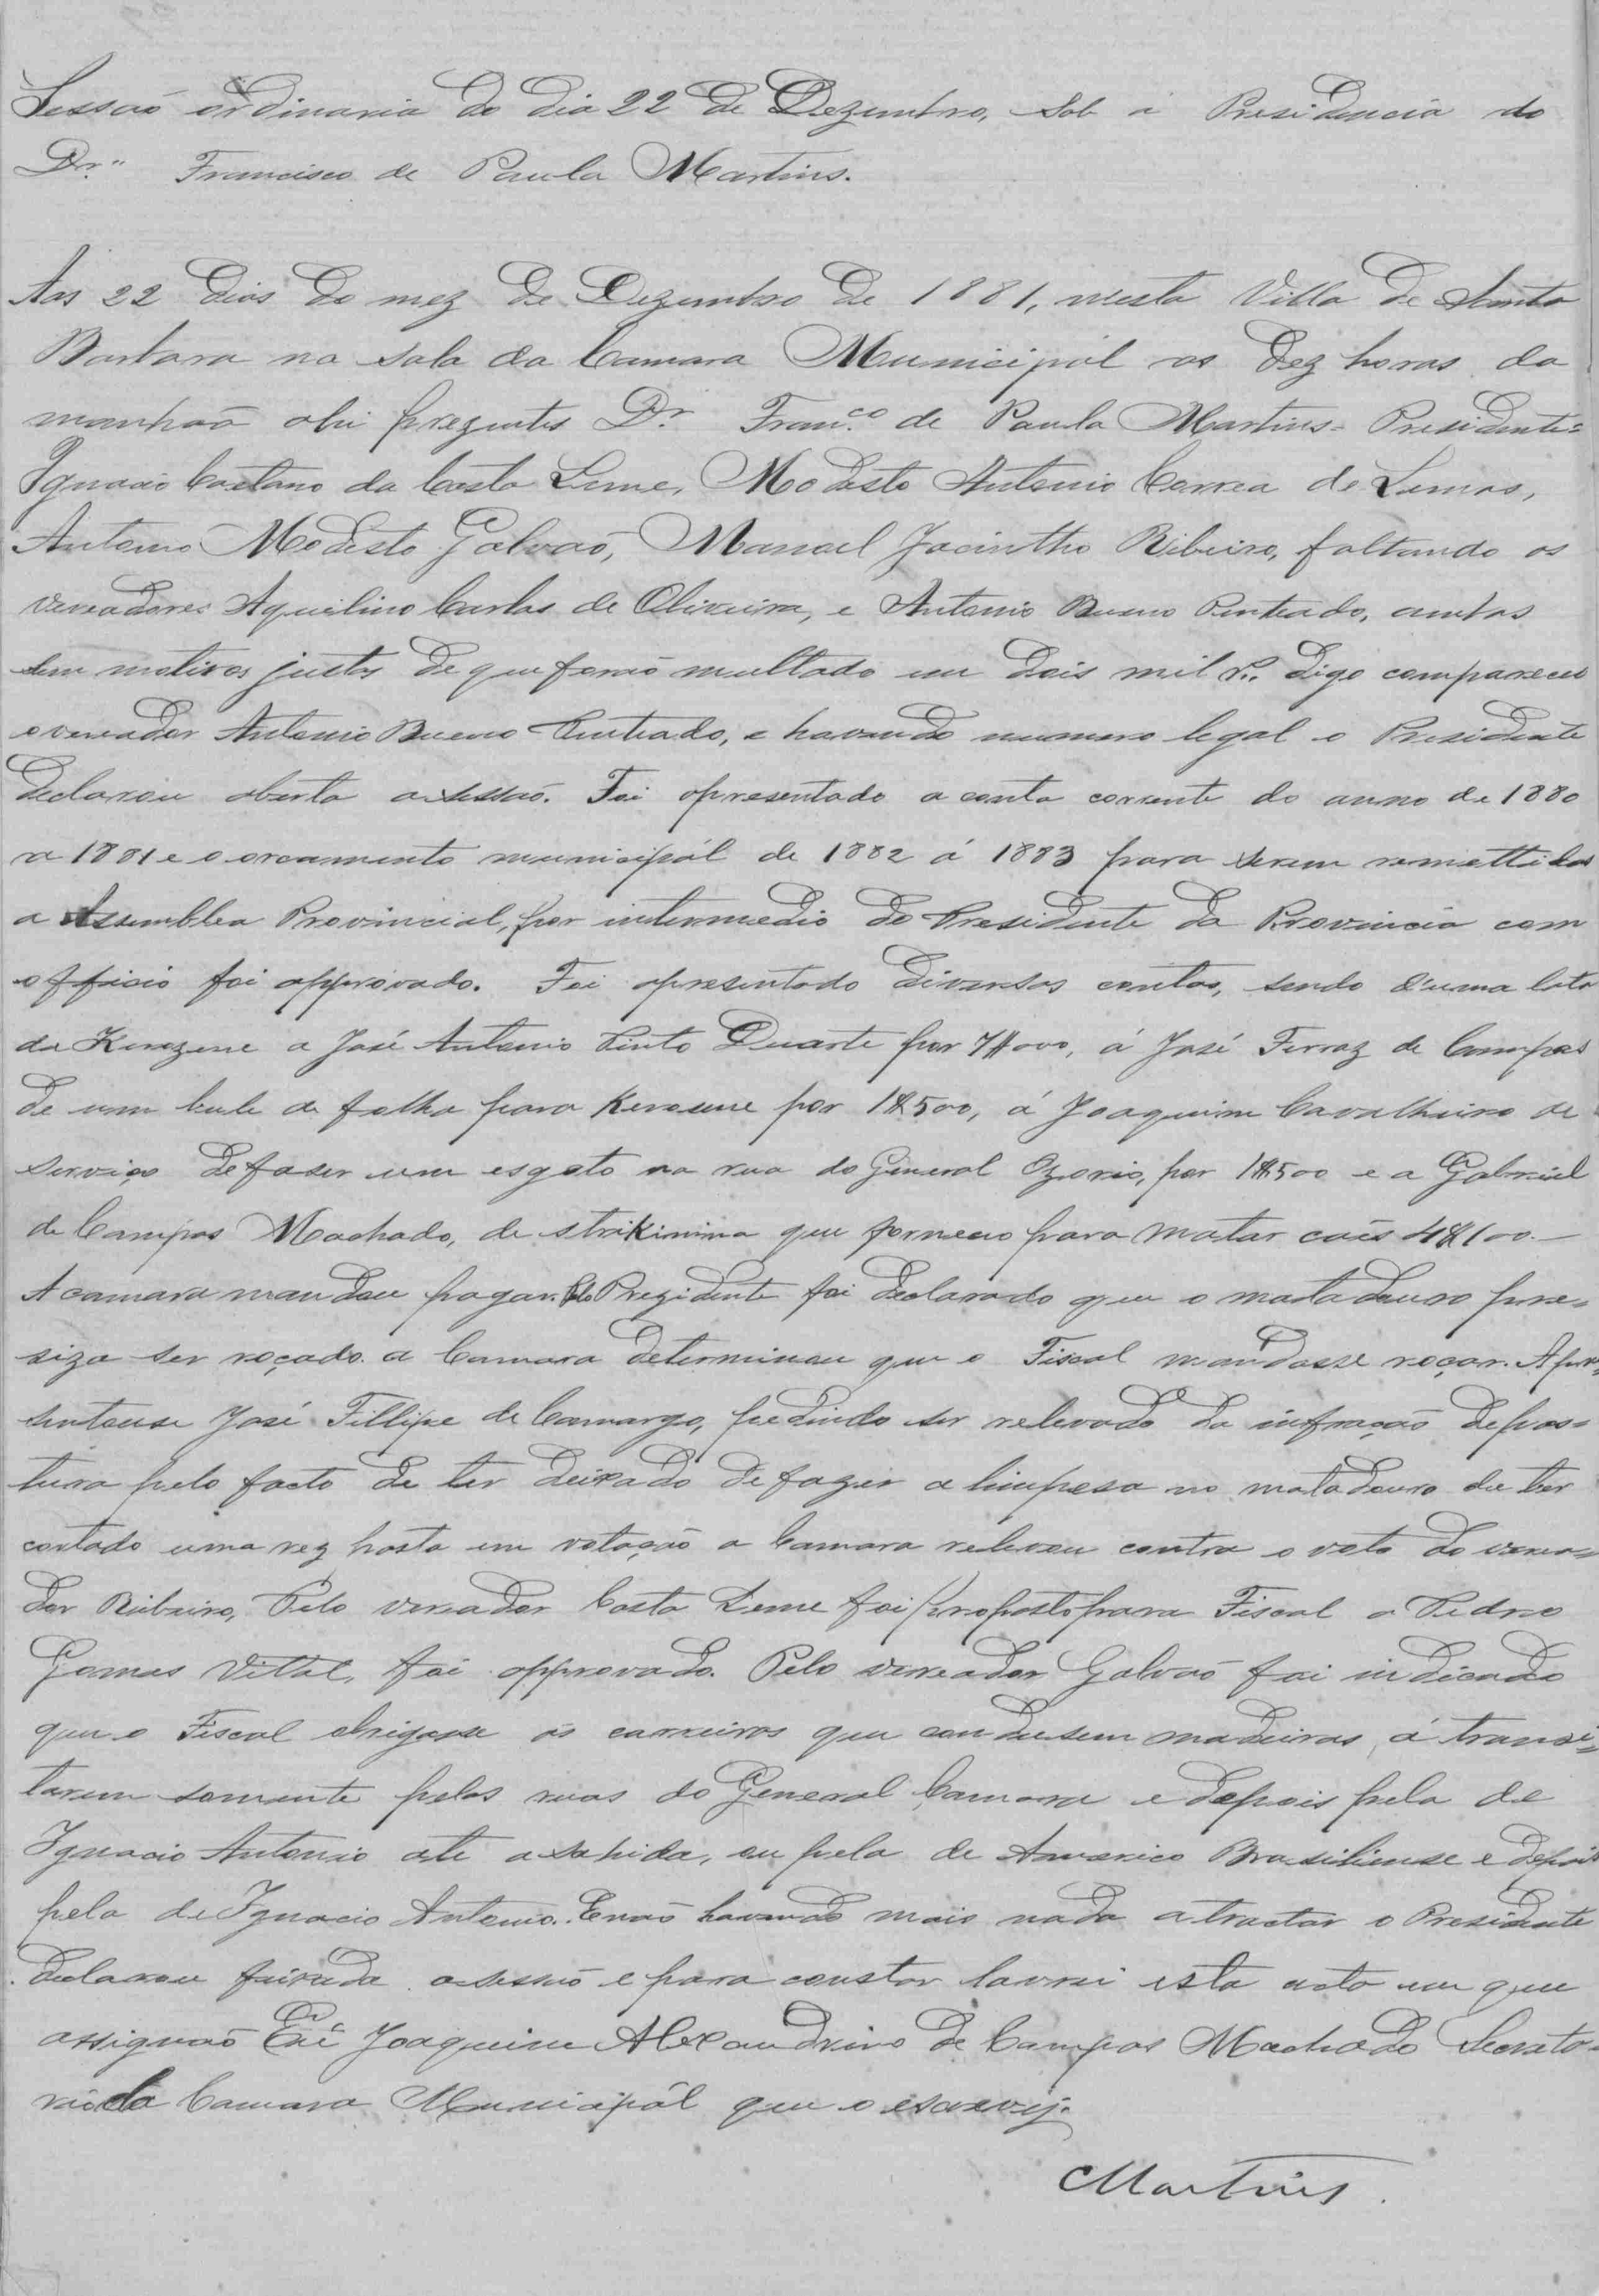 Sessaõ ordinaria do dia 22 de Dezembro, sob a Presidencia do
Dr. Francisco de Paula Martins.
Aos 22 dias do mez de Dezembro de 1881, nesta Villa de Santa
Barbara na sala da Camara Municipál as Dez horas da
manhaã ahi prezentes Dr. Fran.co de Paula Martins = Presidente =
Ignacio Caetano da Costa Leme, Modesto Antonio Correa de Lemos,
Antonio Modesto Galvaõ, Manoel Jacintho Ribeiro, faltando os
vereadores Aquilino Carlos de Oliveira, e Antonio Bueno Penteado, ambos
sem motivos justos de que foraõ multado em dois mil r.s digo compareceo
o vereador Antonio Bueno Penteado, e havendo numero legal o Presidente
declarou aberta a sessaõ. Foi apresentado a conta corrente do anno de 1880
a 1881 e o orcamento municipál de 1882 á 1883 para serem remettidos
a Assemblea Provincial, por intermedio do Presidente da Provincia com
officio foi approvado. Foi apresentado diversas contas, sendo d'uma lata
de Kerozene a José Antonio Pinto Duarte por 7$000, á José Ferraz de Campos
de um bule de folha para Kerosene por 1$500, á Joaquim Cavalheiro de
serviço de faser um esgoto na rua do General Ozorio, por 1$500 e a Gabriel
de Campos Machado, de strikinina que forneceo para matar caẽs 4$100.—
A camara mandou pagar. Pelo Prezidente foi declarado que o matadouro pre=
siza ser roçado. a Camara determinou que o Fiscal mandasse roçar. Apre=
sentouse José Fillipe de Camargo, pedindo ser relevado da infraçaõ de pos=
tura pelo facto de ter deixado de fazer a limpesa no matadouro de ter
cortado uma rez posta em votaçaõ a Camara relevou contra o voto do verea=
dor Ribeiro, Pelo vereador Costa Leme foi proposto para Fiscal a Pedro
Gomes Vital, foi approvado. Pelo vereador Galvaõ foi indicado
que o Fiscal obrigasse os carreiros que condusem madeiras, á transi=
tarem somente pelas ruas do General Camara e depois pela de
Ignacio Antonio ate a sahida, ou pela de Americo Brasiliense e depois
pela de Ignacio Antonio. E naõ havendo mais nada a tractar o Presidente
declarou feixada a sessaõ e para constar lavrei esta acta em que
assignaõ Eu Joaquim Alexandrino de Campos Machado Secreta=
rio da Camara Municipál que o escrevij.
Martins.